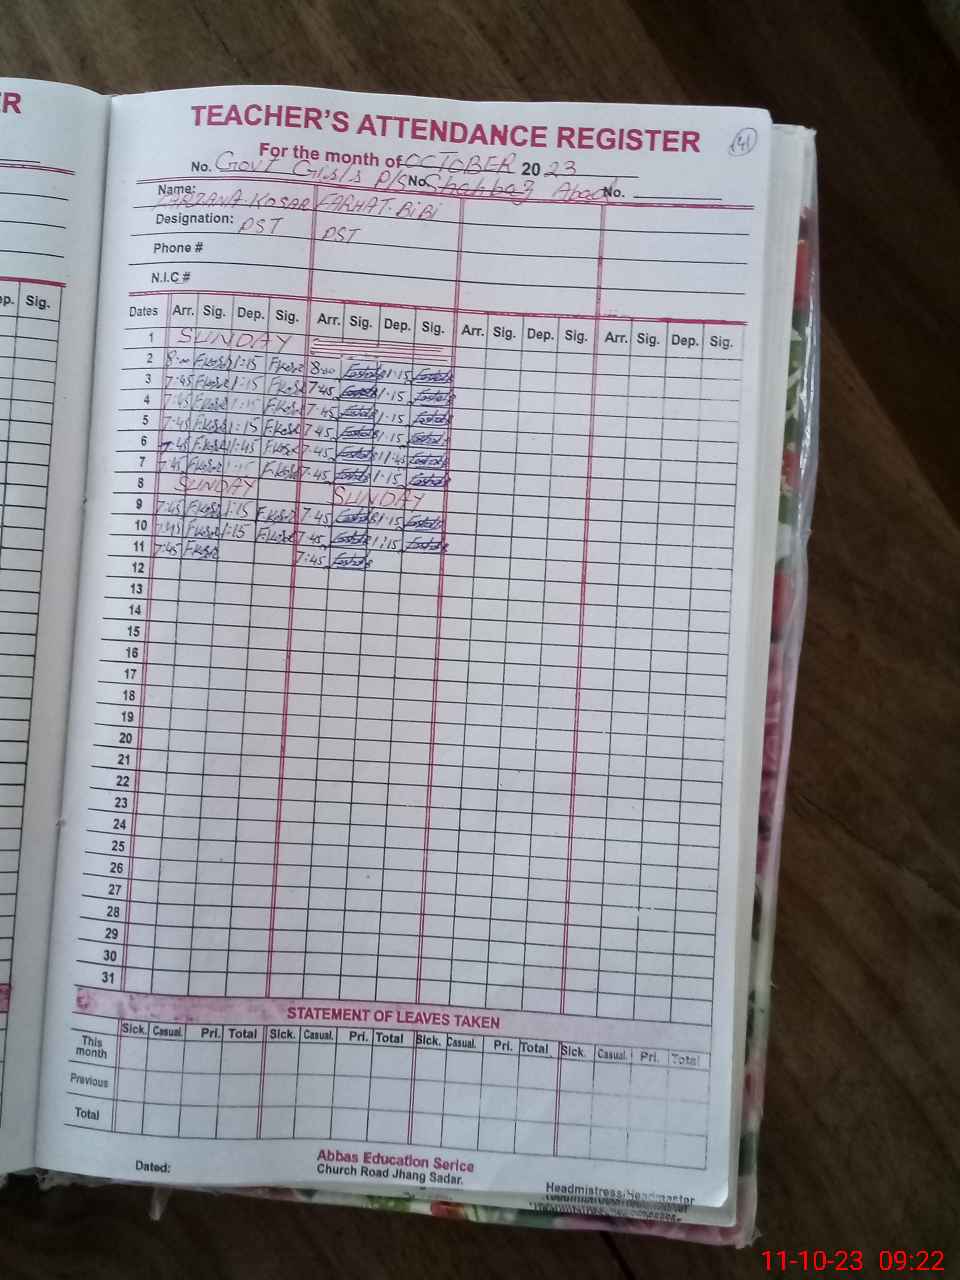 ER
TEACHER'S ATTENDANCE REGISTER
For the month of OCTOBER 2023
No. Govt Girls P/S No. Shahbaz Abad No.
Name: FARZANA KOSAR FARHAT BiBi
Designation: PST PST
Phone #
N.I.C #
Dep. Sig.
Dates Arr. Sig. Dep. Sig. Arr. Sig. Dep. Sig. Arr. Sig. Dep. Sig. Arr. Sig. Dep. Sig.
1 SUNDAY
2 8:00 F.Kosr 1:15 F.Kosr 8:00 1:15
3 7:45 F.Kosr 1:15 F.Kosr 7:45 1:15
4 7:45 F.Kosr 1:15 F.Kosr 7:45 1:15
5 7:45 F.Kosr 1:15 F.Kosr 7:45 1:15
6 7:45 F.Kosr 11:45 F.Kosr 7:45 11:45
7 7:45 F.Kosr 1:15 F.Kosr 7:45 1:15
8 SUNDAY SUNDAY
9 7:45 F.Kosr 1:15 F.Kosr 7:45 1:15
10 7:45 F.Kosr 1:15 F.Kosr 7:45 1:15
11 7:45 F.Kosr 7:45
12
13
14
15
16
17
18
19
20
21
22
23
24
25
26
27
28
29
30
31
STATEMENT OF LEAVES TAKEN
Sick. Casual. Pri. Total Sick. Casual. Pri. Total Sick. Casual. Pri. Total Sick. Casual. Pri. Total
This month
Previous
Total
Dated:
Abbas Education Serice
Church Road Jhang Sadar.
Headmistress/Headmaster
11-10-23 09:22